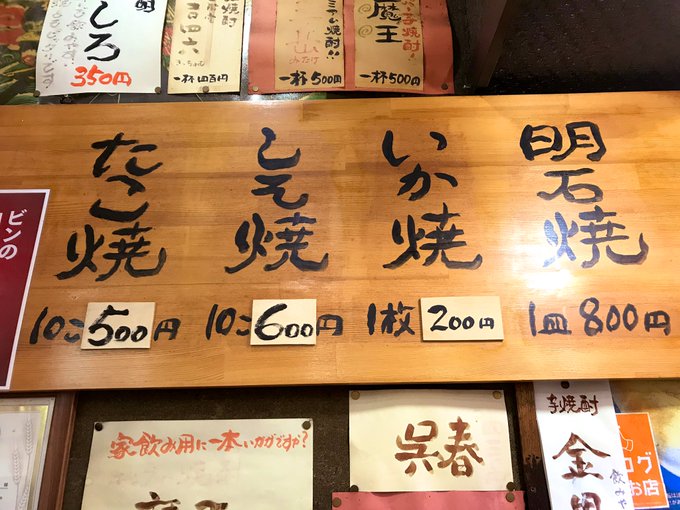 しろ
350円
吉四六
一杯四百円
一杯500円
芋焼酎!
魔王
一杯500円
明石焼
1皿800円
いか焼
1枚200円
しそ焼
10こ600円
たこ焼
10こ500円
ビンの
家飲み用に一本いかがですか?
呉春
芋焼酎
ログ
お店